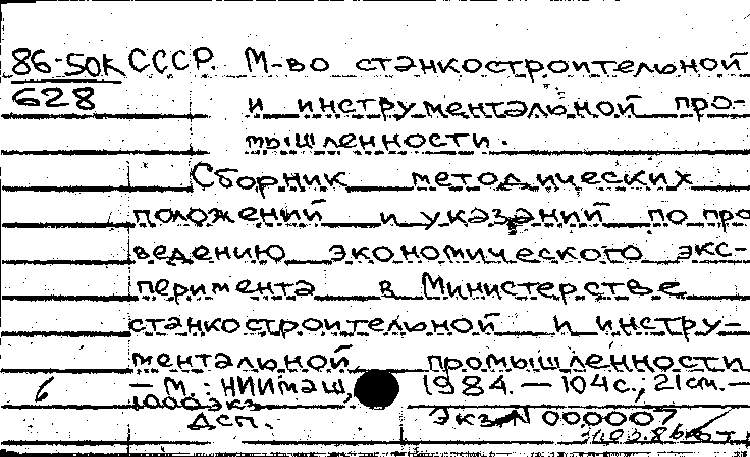 86-50к СССР. М-во станкостроительной
628 и инструментальной про-
мышленности.
Сборник методических
положений и указаний по про
ведению экономического экс-
перимента в Министерстве
станкостроительной и инстру-
ментальной промышленности
б — М.: НИИмаш, 1984. — 104с.; 21см. —
1000экз
Дсп. Экз. N 000007